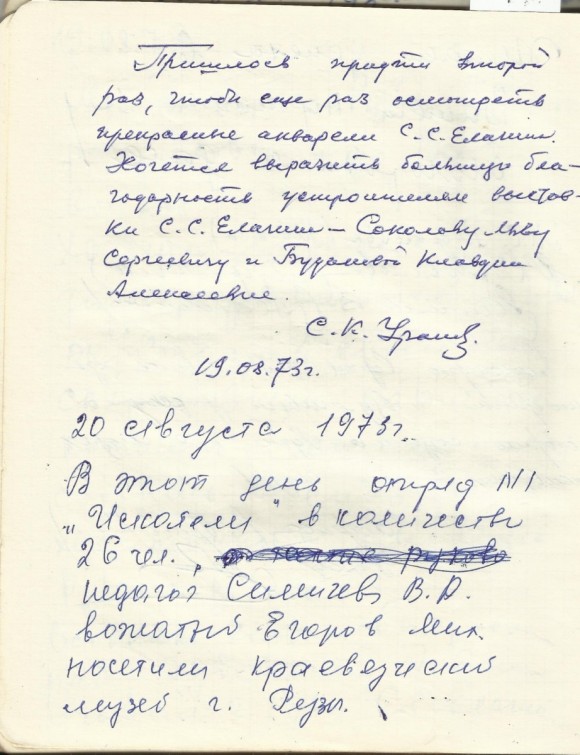 Пришлось придти второй
раз, чтобы еще раз осмотреть
прекрасные акварели С.С. Елагина.
Хочется выразить большую бла-
годарность устроителям выстав-
ки С.С. Елагина – Соколову Льву
Сергеевичу и Будашовой Клавдии
Алексеевне.
С.К.
19.08.73г.
20 августа 1973г.
В этот день отряд №1
„Искатели" в количестве
26 чел.,
педагог В.Р.
вожатый Егоров Мих.
посетили краеведческий
музей г. Рузы.